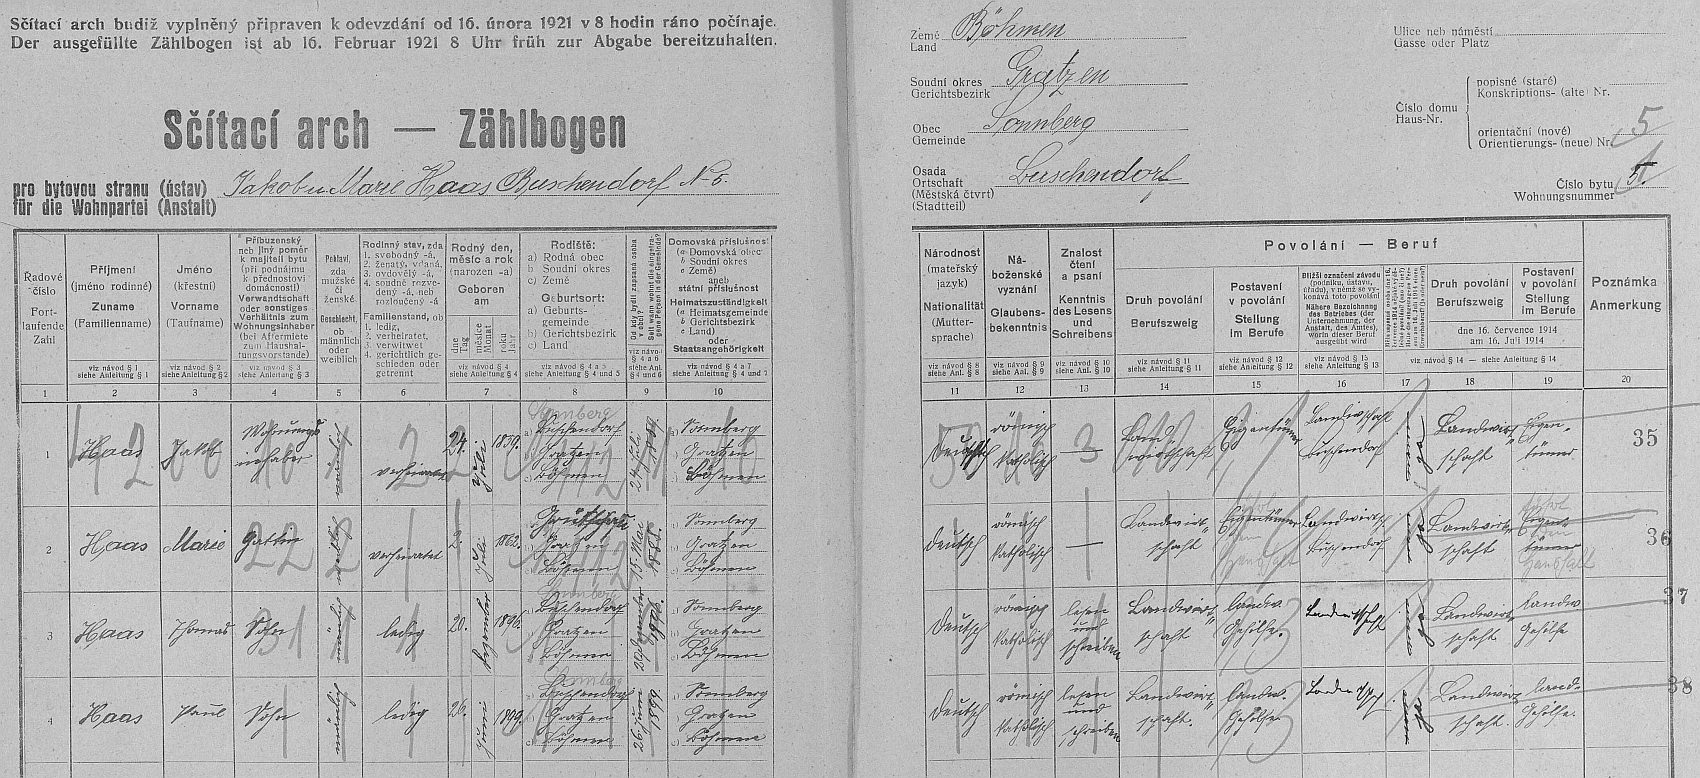 Sčítací arch budiž vyplněný připraven k odevzdání od 16. února 1921 v 8 hodin ráno počínaje.
Der ausgefüllte Zählbogen ist ab 16. Februar 1921 8 Uhr früh zur Abgabe bereitzuhalten.
Sčítací arch — Zählbogen
pro bytovou stranu (ústav)
für die Wohnpartei (Anstalt)
Jakob u Marie Haas Buschendorf N-5.
Země
Land
Böhmen
Soudní okres
Gerichtsbezirk
Gratzen
Obec
Gemeinde
Sonnberg
Osada
Ortschaft
(Městská čtvrt)
(Stadtteil)
Buschendorf
Ulice neb náměstí
Gasse oder Platz
Číslo domu
Haus-Nr.
popisné (staré)
Konskriptions- (alte) Nr.
orientační (nové)
Orientierungs- (neue) Nr.
5
Číslo bytu
Wohnungsnummer
Řadové číslo
Fortlaufende Zahl
Příjmení
(jméno rodinné)
Zuname
(Familienname)
viz návod § 1
siehe Anleitung § 1
Jméno
(křestní)
Vorname
(Taufname)
viz návod § 2
siehe Anleitung § 2
Příbuzenský
neb jiný poměr
k majiteli bytu
(při podnájmu
k přednostovi
domácnosti)
Verwandtschaft
oder sonstiges
Verhältnis zum
Wohnungsinhaber
(bei Aftermiete
zum Haushal-
tungsvorstande)
viz návod § 3
siehe Anleitung § 3
Pohlaví,
zda
mužské
či
ženské
Geschlecht,
ob
männlich
oder
weiblich
Rodinný stav, zda
1. svobodný -á,
2. ženatý, vdaná,
3. ovdovělý -á,
4. soudně rozve-
dený, -á neb
rozloučený -á
Familienstand, ob
1. ledig,
2. verheiratet,
3. verwitwet
4. gerichtlich ge-
schieden oder
getrennt
Rodný den,
měsíc a rok
(narozen -a)
Geboren
am
dne
Tag
měsíce
Monat
roku
Jahr
viz návod § 4
siehe Anleitung § 4
Rodiště:
a) Rodná obec
b) Soudní okres
c) Země
Geburtsort:
a) Geburts-
gemeinde
b) Gerichtsbezirk
c) Land
Od kdy bydlí zapsaná osoba
v obci?
Domovská příslušnost
(a Domovská obec
b Soudní okres
c Země)
aneb
státní příslušnost
Heimatszuständigkeit
(a Heimatsgemeinde
b Gerichtsbezirk
c Land)
oder
Staatsangehörigkeit
Národnost
(mateřský
jazyk)
Nationalität
(Mutter-
sprache)
Ná-
boženské
vyznání
Glaubens-
bekenntnis
Znalost
čtení
a psaní
Kenntnis
des Lesens
und
Schreibens
Povolání — Beruf
Druh povolání
Berufszweig
Postavení
v povolání
Stellung
im Berufe
Bližší označení závodu
(podniku, ústavu,
úřadu), v němž se vy-
konává toto povolání
Nähere Bezeichnung
des Betriebes (der
Unternehmung, der
Anstalt, des Amtes),
worin dieser Beruf
ausgeübt wird
Druh povolání
Berufszweig
Postavení
v povolání
Stellung
im Berufe
dne 16. července 1914
am 16. Juli 1914
viz návod § 14 — siehe Anleitung § 14
Poznámka
Anmerkung
1 2 3 4 5 6 7 8 9 10 11 12 13 14 15 16 17 18 19 20
1 Haas Jakob Wohnungsinhaber männlich verheiratet 24. Juli 1839. Buschendorf Gratzen Böhmen 24 Juli 1839 Sonnberg Gratzen Böhmen Deutsch römisch katholisch — Landwirtschaft Eigentümer Landwirtschaft Buschendorf Landwirtschaft Eigentümer 35
2 Haas Marie Gattin weiblich verheiratet 2. Juli 1862. Gratzen Böhmen 15 Mai 1885. Sonnberg Gratzen Böhmen Deutsch römisch katholisch — Landwirtschaft Eigentümer Landwirtsch Buschendorf Landwirtschaft Eigentümer Haushalt 36
3 Haas Thomas Sohn männlich ledig 20. Dezember 1896. Sonnberg Buschendorf Gratzen Böhmen 20 Dezember 1896. Sonnberg Gratzen Böhmen Deutsch römisch katholisch lesen und schreiben Landwirtschaft landw. Gehilfe. Landwirtschaft Landwirtschaft landw. Gehilfe 37
4 Haas Paul Sohn männlich ledig 26. Juni 1899. Sonnberg Buschendorf Gratzen Böhmen 26 Juni 1899. Sonnberg Gratzen Böhmen Deutsch römisch katholisch lesen und schreiben Landwirtschaft. landw. Gehilfe. Landwirtschaft. land. Gehilfe. 38